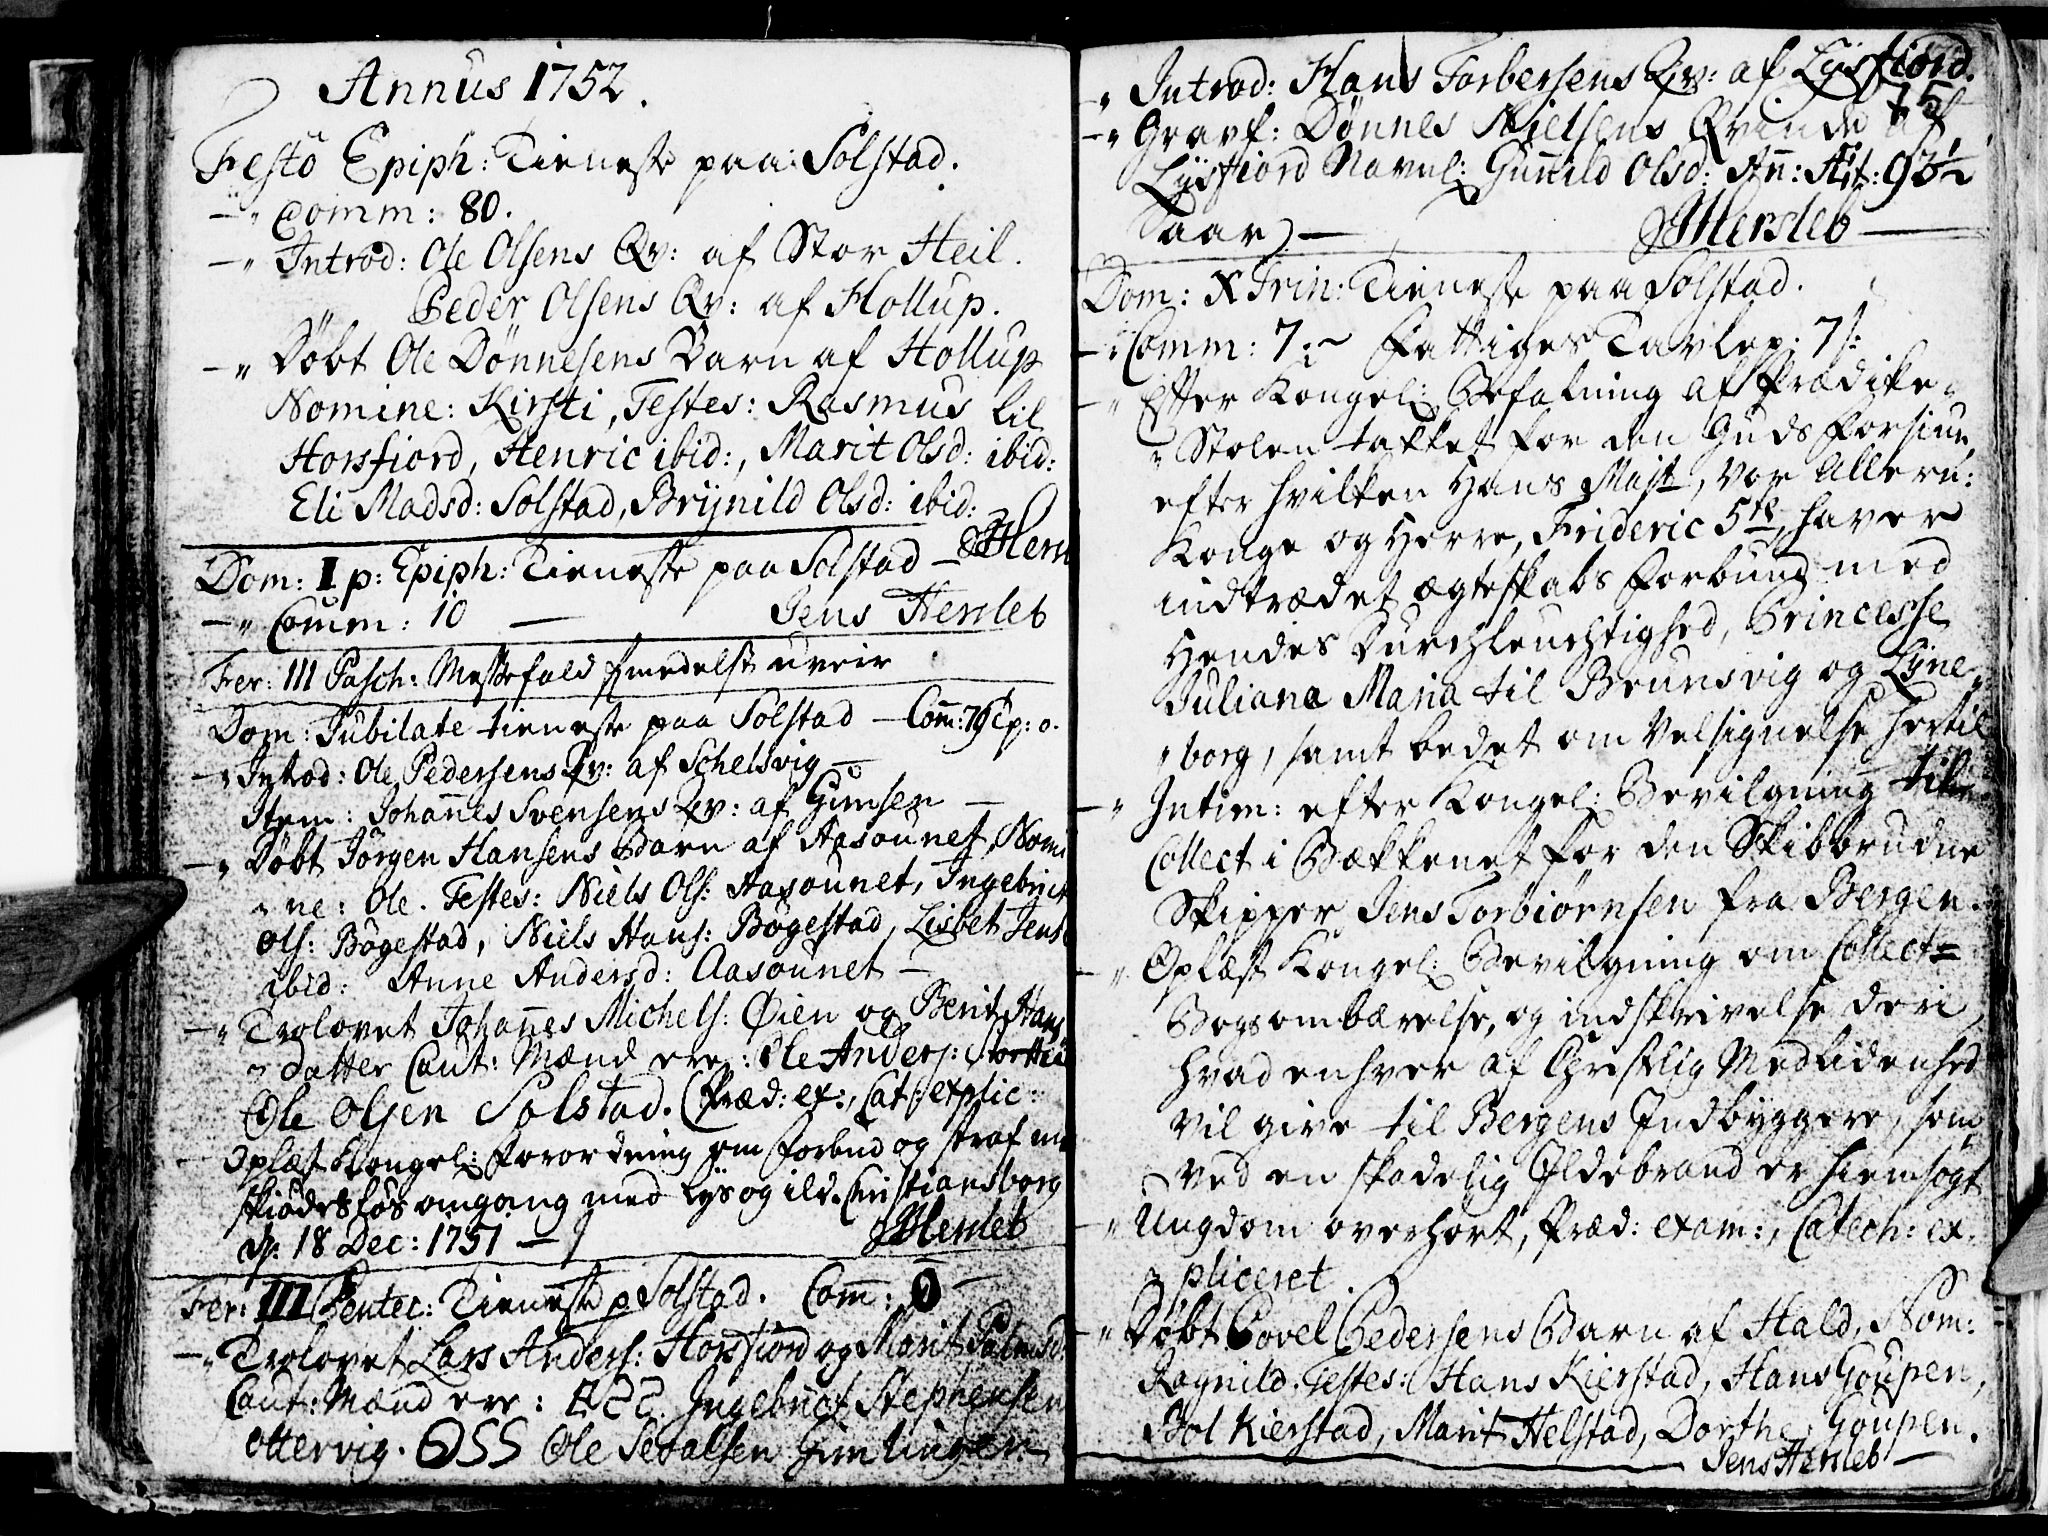 Annus 1752.
Festo Epiph: Tieneste paa Solstad.
—" Comm: 80.
—" Introd: Ole Olsens Qv: af Stor Heil.
Peder Olsens Qv: af Hollup.
—" Döbt Ole Dönnesens Barn af Hollup
Nomine: Kirsti, Testes: Rasmus lil
Horsfiord, Henric ibid:, Marit Olsd: ibid:
Eli Madsd: Solstad, Brÿnild Olsd: ibid:
Dom: I p: Epiph: Tieneste paa Solstad —
—" Comm: 10 — Jens Hersleb
Fer: III Pasch: Messefald formedelst uveir
Dom: Jubilate tieneste paa Solstad — Com̄: 79
—" Introd: Ole Pedersens Qv: af Schelsvig —
Item: Johan̄es Svensens Qv: af Gimsen —
—" Döbt Jörgen Hansens Barn af Aasounet, Nomi
ne: Ole. Testes: Niels Ols: Aasounet, Ingebrict
Ols: Bögestad, Niels Hans: Bögestad, Lisbet Jens
ibid: Anne Andersd: Aasounet —
—" Trolovet Johan̄es Michels: Øien og Berit Hans
datter Caut: Mænd ere: Ole Anders:
Ole Olsen Solstad. (Præd: ex:, Cat: explic:
Oplæst Kongel: Forordning om Forbud og straf
skiödeslös omgang med lys og ild. Christiansborg
d: 18 Dec: 1751 — JHersleb
Fer: III Pentec: Tieneste p Solstad. Com̄: 0 —
—" Trolovet Lars Anders: Horsfiord og Marit
Caut: Mænd ere: Ingebrict Stephensen
Ottervig. Ole
—" Introd: Hans Torbersens Qv: af Lysfiord.
75
—" Gravf: Dönnes Nielsens Qvinde af
Lÿsfiord Navnl: Gun̄ild Olsd: An̄: Æt: 93½
aar) — JHersleb —
Dom: X Trin: Tieneste paa Solstad.
—" Comm: 7. Fattiges Tavlep. 7
—" Efter Kongel: Befalning af Prædike
Stolen takket for den Guds Forsiun
efter hvilken Hans Majst, vor Alleru:
Konge og Herre, Frideric 5te, haver
indtrædet ægteskabs Forbund med
Hendes Durchleuchtighed, Princesse
Juliana Maria til Brunsvig og Lyne
borg, samt bedet om Velsignelse hertil
—" Intim: efter Kongel: Bevilgning til
Collect i Bækkenet for den Skibbrudne
Skipper Jens Torbiörnsen fra Bergen.
—" Oplæst Kongel: Bevilgning om Collect=
Bogs ombærelse, og indskrivelse deri
hvad enhver af Christlig Medlidenhed
vil give til Bergens Indbyggere, som
ved en skadelig Ildebrand er hiemsögt
—" Ungdom overhört, Præd: exam:, Catech: ex
pliceret.
—" Döbt Povel Pedersens Barn af Hald, Nom:
Ragnild. Testes: Hans Kierstad, Hans Goupen,
Bol Kierstad, Marit Helstad, Dorthe Goupen.
Jens Hersleb —